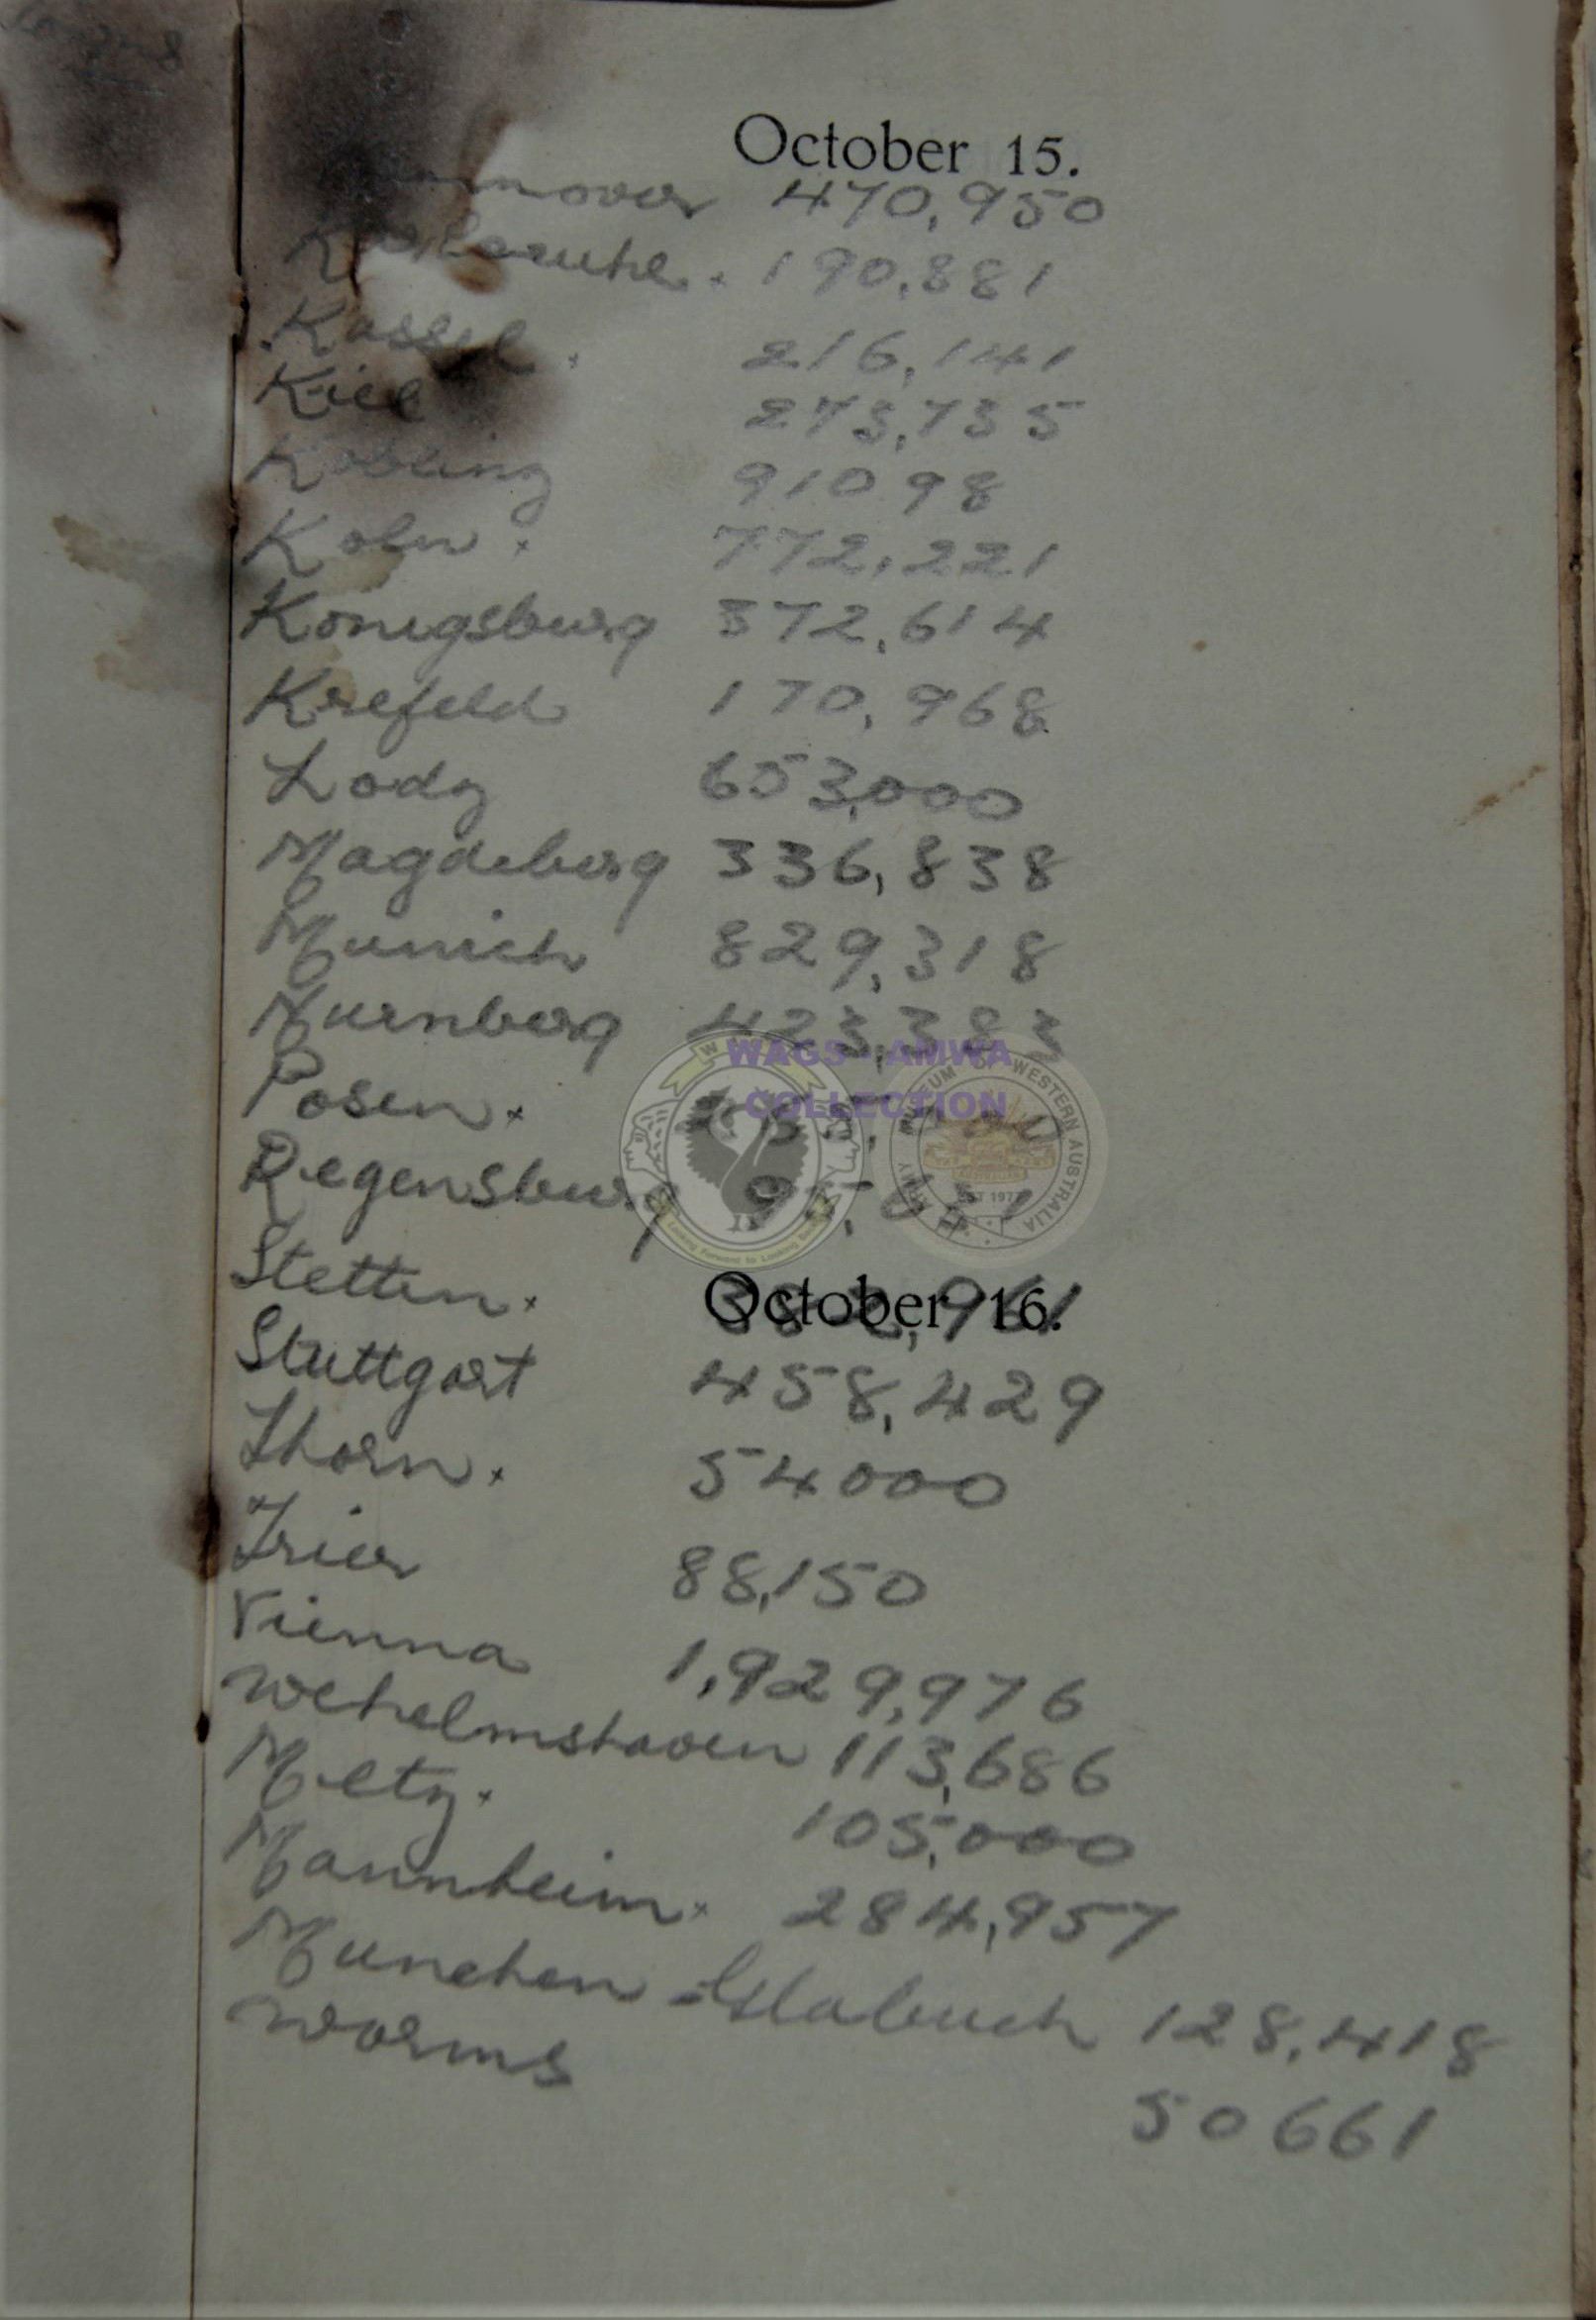 October 15.
470,950
Karlsruhe. 190,881
Kassel. 216,141
Kiel 273,735
Koblinz 91098
Koln. 772,221
Konigsburg 372,614
Krefeld 170,968
Lodz 653,000
Magdeburg 336,838
Munich 829,318
Nurnberg 423,383
Posen.
Regensburg
Stetten.
October 16.
Stuttgart 458,429
Thorn. 54000
Trier 88,150
Vienna 1,929,976
Wehelmshaven 113,686
Metz. 105,000
Mannheim. 284,957
Munchen-Glabuch 128,418
Worms 50661
WAGS - AMWA
COLLECTION